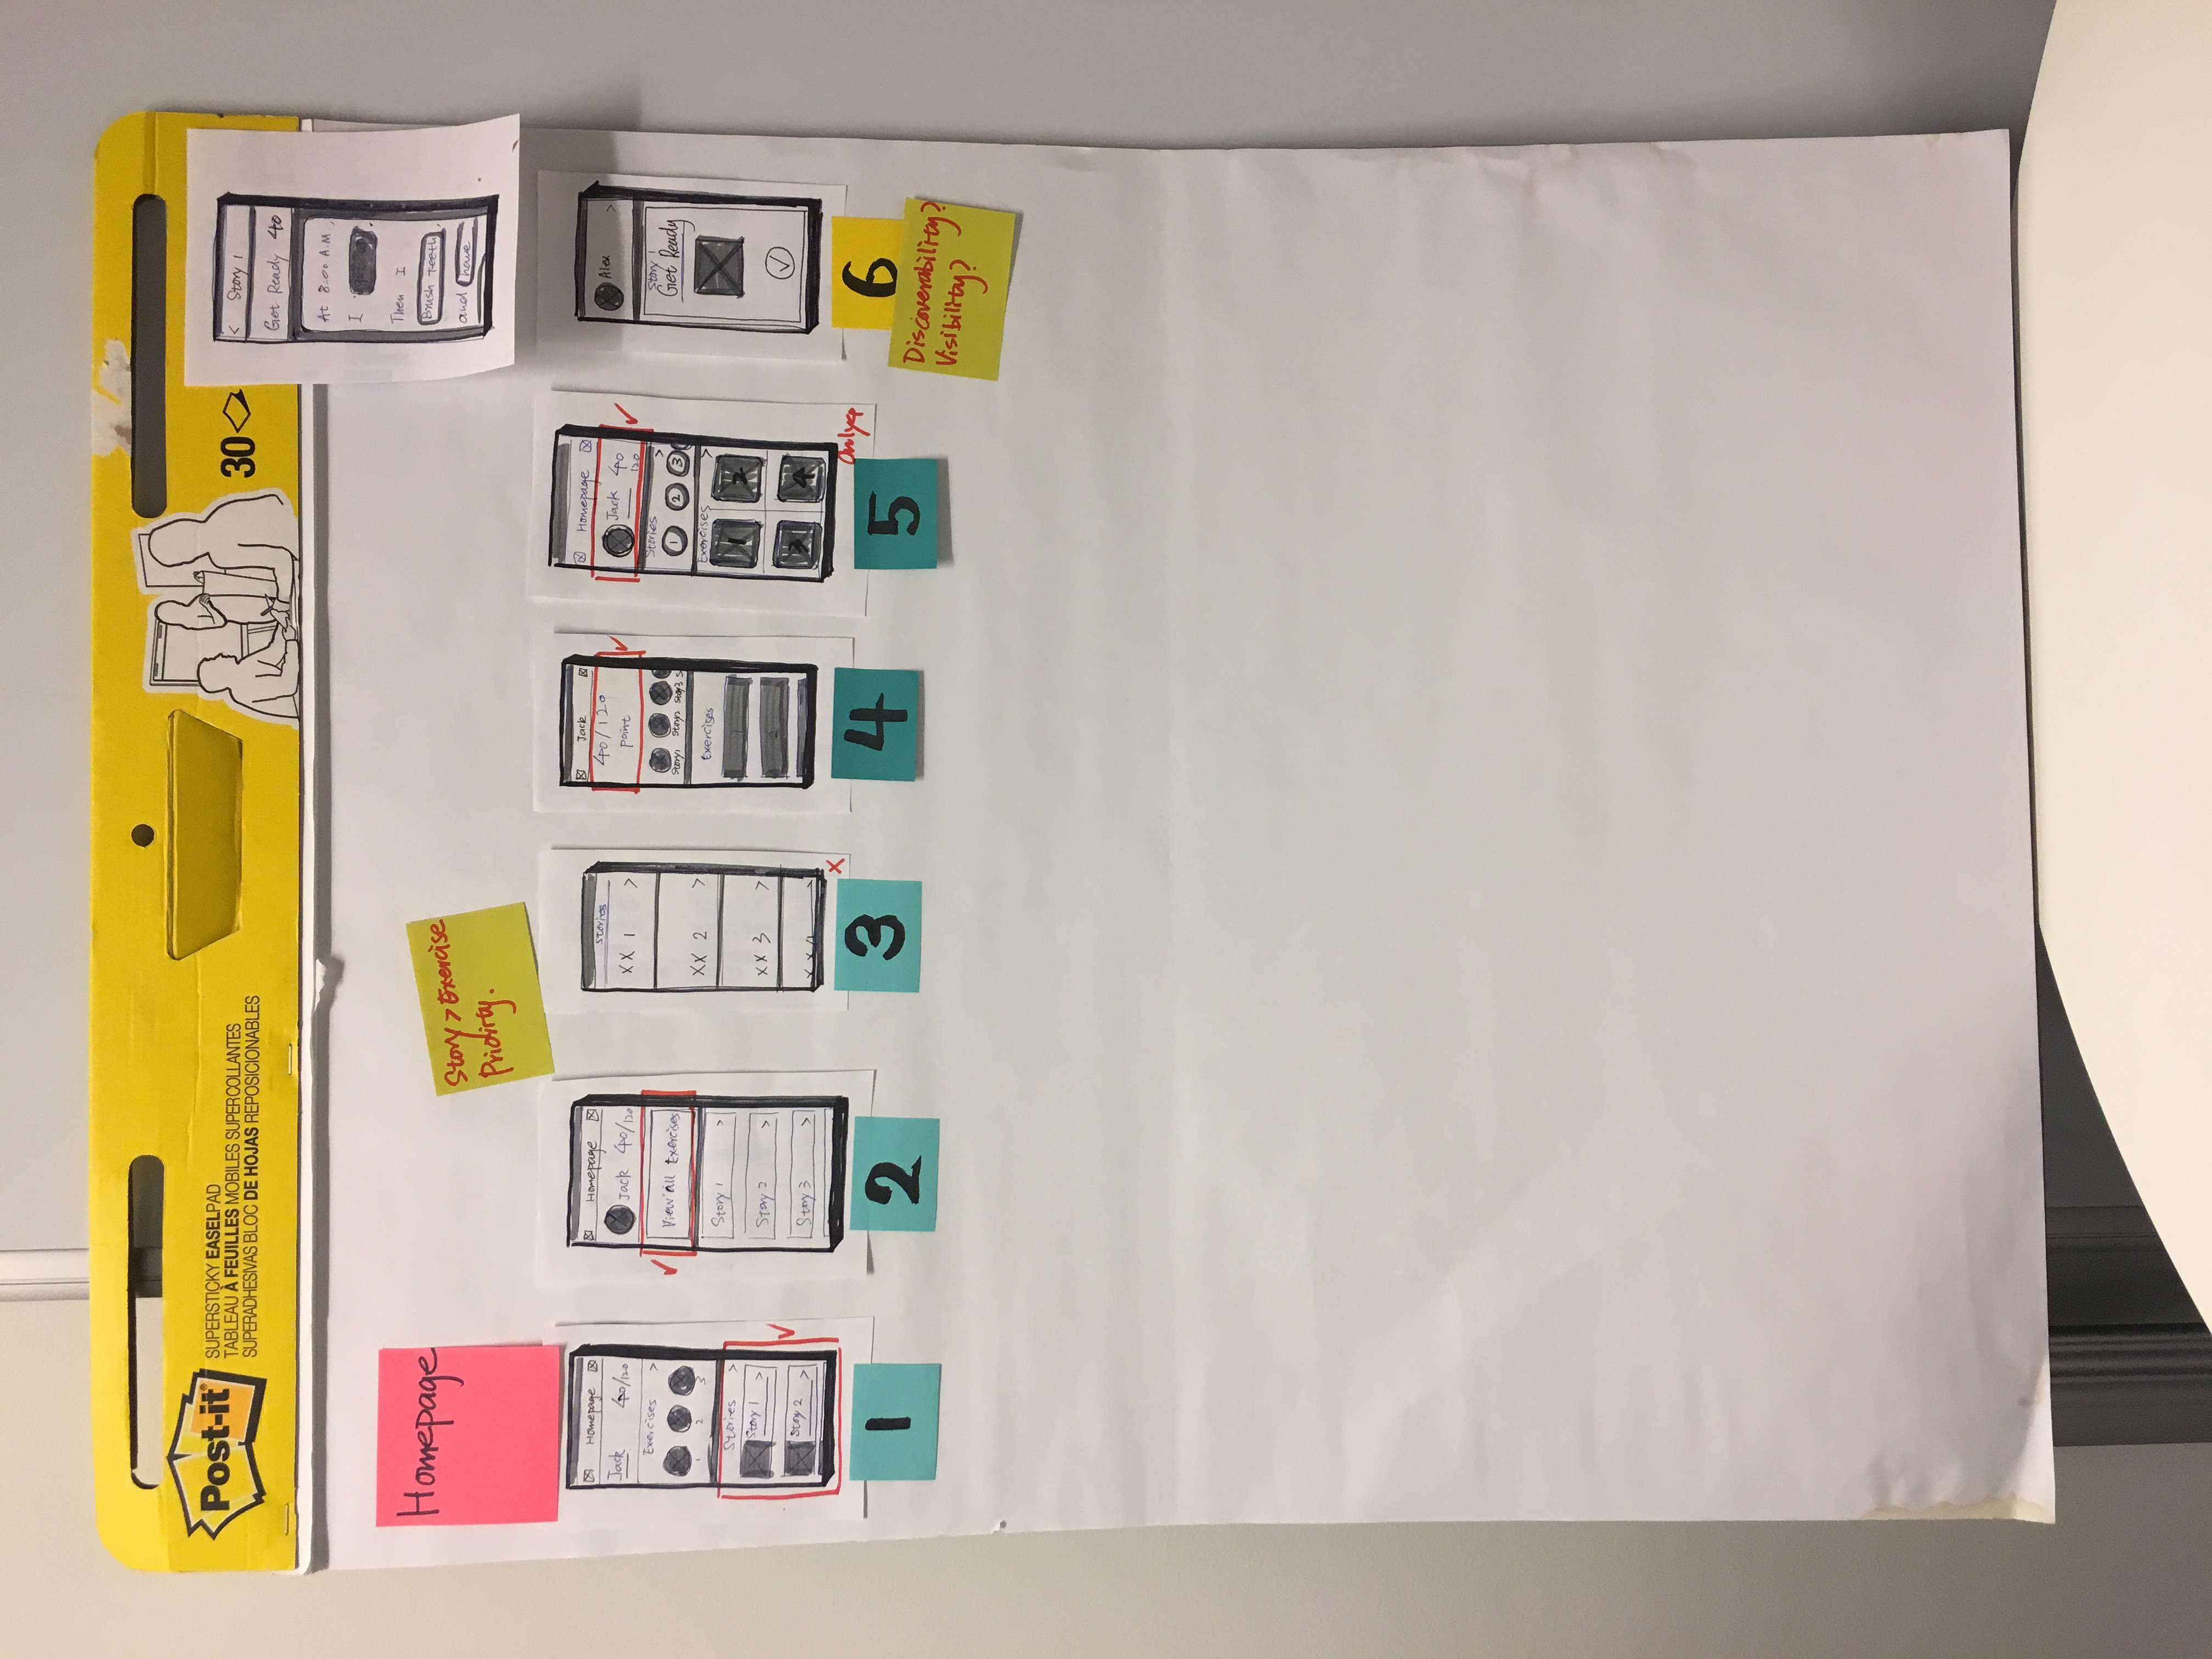 Post-it
SUPERSTICKY EASELPAD
TABLEAU À FEUILLES MOBILES SUPERCOLLANTES
SUPERADHESIVAS BLOC DE HOJAS REPOSICIONABLES
30
Story 1
Get Ready 40
At 8:00 A.M.,
I
Then I
Brush teeth,
and have
Homepage
Story > Exercise
Priority.
Homepage
Jack 40/120
Exercises >
1 2 3
Stories >
Story 1 >
Story 2 >
1
Homepage
Jack 40/120
View all Exercises
Story 1 >
Story 2 >
Story 3 >
2
Stories
XX 1 >
XX 2 >
XX 3 >
3
Jack
40/120
point
Story1 Story2 Story3 S
Exercises
1
2
4
Homepage
Jack 40
120
Stories >
1 2 3
Exercises >
1 2
3 4
5
Alex >
Story 1
Get Ready
6
Discoverability?
Visibility?